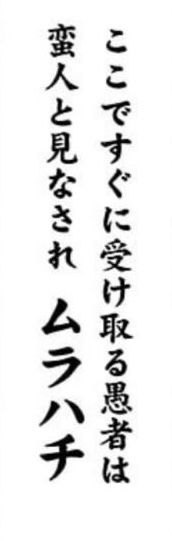 ここですぐに受け取る愚者は
蛮人と見なされ ムラハチ